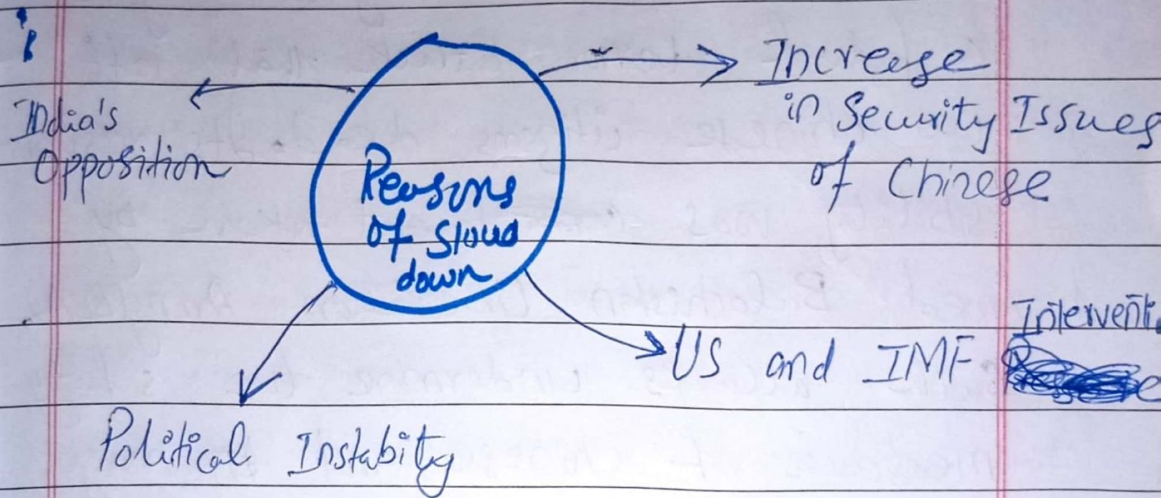 India's
Opposition
Reasons
of Slow
down
Increase
in Security Issues
of Chinese
US and IMF Interventi
Political Instabity